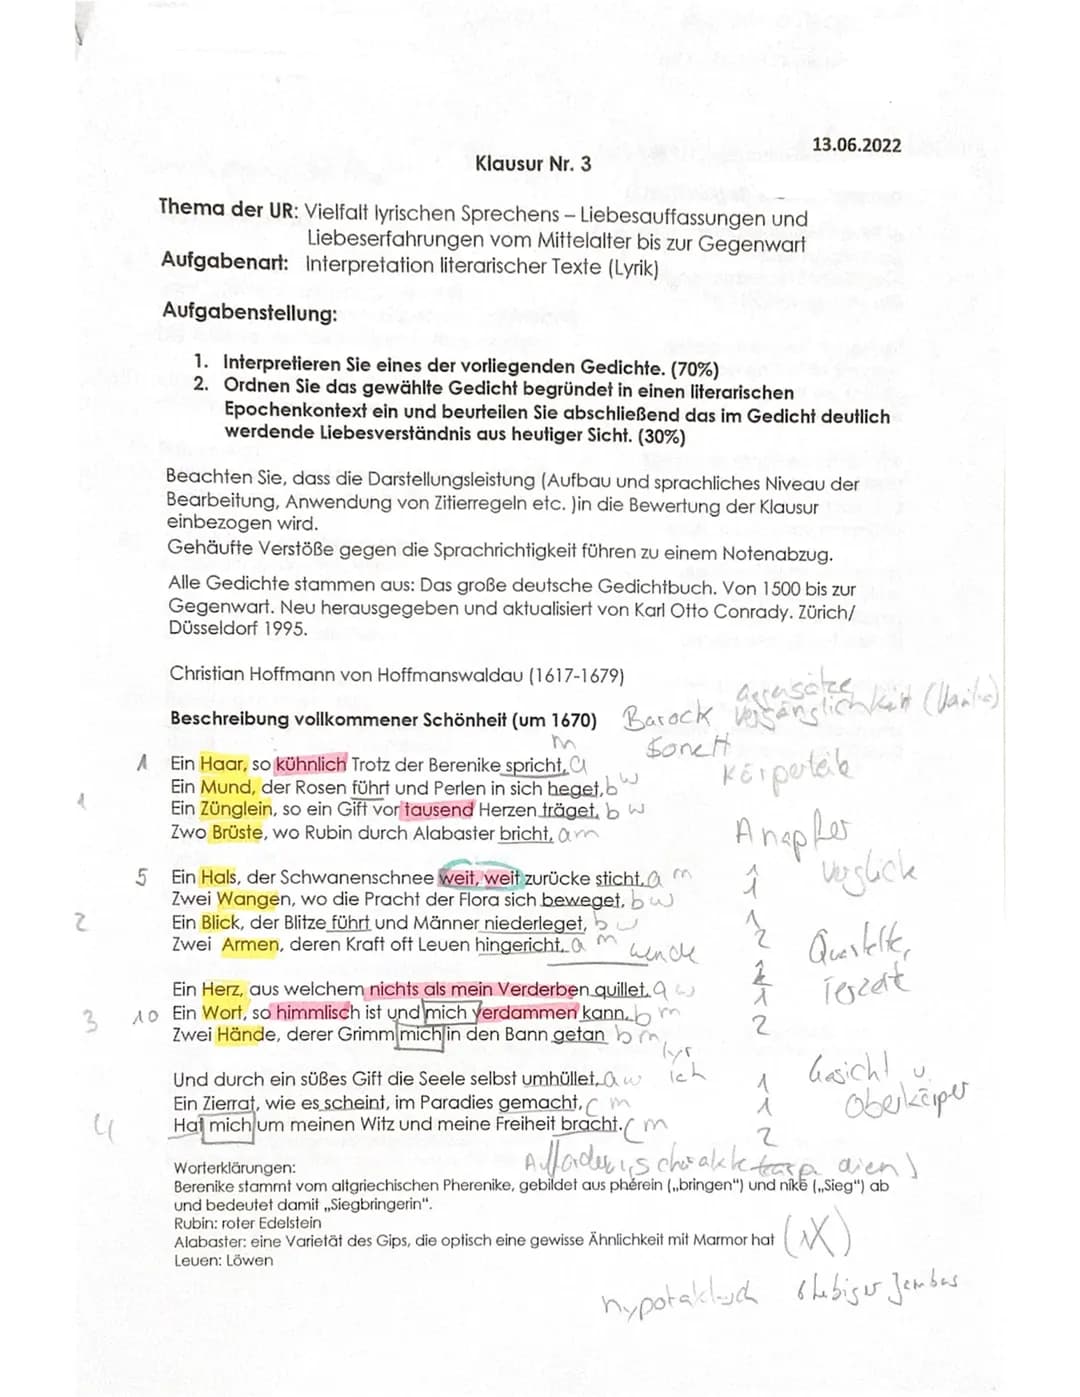 13.06.2022
Klausur Nr. 3
Thema der UR: Vielfalt lyrischen Sprechens – Liebesauffassungen und
Liebeserfahrungen vom Mittelalter bis zur Gegenwart
Aufgabenart: Interpretation literarischer Texte (Lyrik)
Aufgabenstellung:
1. Interpretieren Sie eines der vorliegenden Gedichte. (70%)
2. Ordnen Sie das gewählte Gedicht begründet in einen literarischen
Epochenkontext ein und beurteilen Sie abschließend das im Gedicht deutlich
werdende Liebesverständnis aus heutiger Sicht. (30%)
Beachten Sie, dass die Darstellungsleistung (Aufbau und sprachliches Niveau der
Bearbeitung, Anwendung von Zitierregeln etc. )in die Bewertung der Klausur
einbezogen wird.
Gehäufte Verstöße gegen die Sprachrichtigkeit führen zu einem Notenabzug.
Alle Gedichte stammen aus: Das große deutsche Gedichtbuch. Von 1500 bis zur
Gegenwart. Neu herausgegeben und aktualisiert von Karl Otto Conrady. Zürich/
Düsseldorf 1995.
Christian Hoffmann von Hoffmanswaldau (1617-1679)
Gegensätze
Beschreibung vollkommener Schönheit (um 1670) Barock Vergänglichkeit
m Sonett
1 Ein Haar, so kühnlich Trotz der Berenike spricht, a Körperteile
Ein Mund, der Rosen führt und Perlen in sich heget, b w
1 Ein Zünglein, so ein Gift vor tausend Herzen träget, b w
Zwo Brüste, wo Rubin durch Alabaster bricht, a m Anapher
5 Ein Hals, der Schwanenschnee weit, weit zurücke sticht, a m 1 Vergleiche
Zwei Wangen, wo die Pracht der Flora sich beweget, b w 1
2 Ein Blick, der Blitze führt und Männer niederleget, b w 1
Zwei Armen, deren Kraft oft Leuen hingericht, a m wende 2 Quartette,
Ein Herz, aus welchem nichts als mein Verderben quillet, a w Terzett
3 10 Ein Wort, so himmlisch ist und mich verdammen kann, b m 1
Zwei Hände, derer Grimm mich in den Bann getan b m, 2
lyr
Und durch ein süßes Gift die Seele selbst umhüllet, a w ich 1 Gesicht u
Ein Zierrat, wie es scheint, im Paradies gemacht, c m 1 Oberkörper
4 Hat mich um meinen Witz und meine Freiheit bracht. c m 2
Worterklärungen:
Berenike stammt vom altgriechischen Pherenike, gebildet aus phérein („bringen“) und níkē („Sieg“) ab
und bedeutet damit „Siegbringerin“.
Rubin: roter Edelstein
Alabaster: eine Varietät des Gips, die optisch eine gewisse Ähnlichkeit mit Marmor hat
Leuen: Löwen
hypotaktisch 6 hebiger Jambus